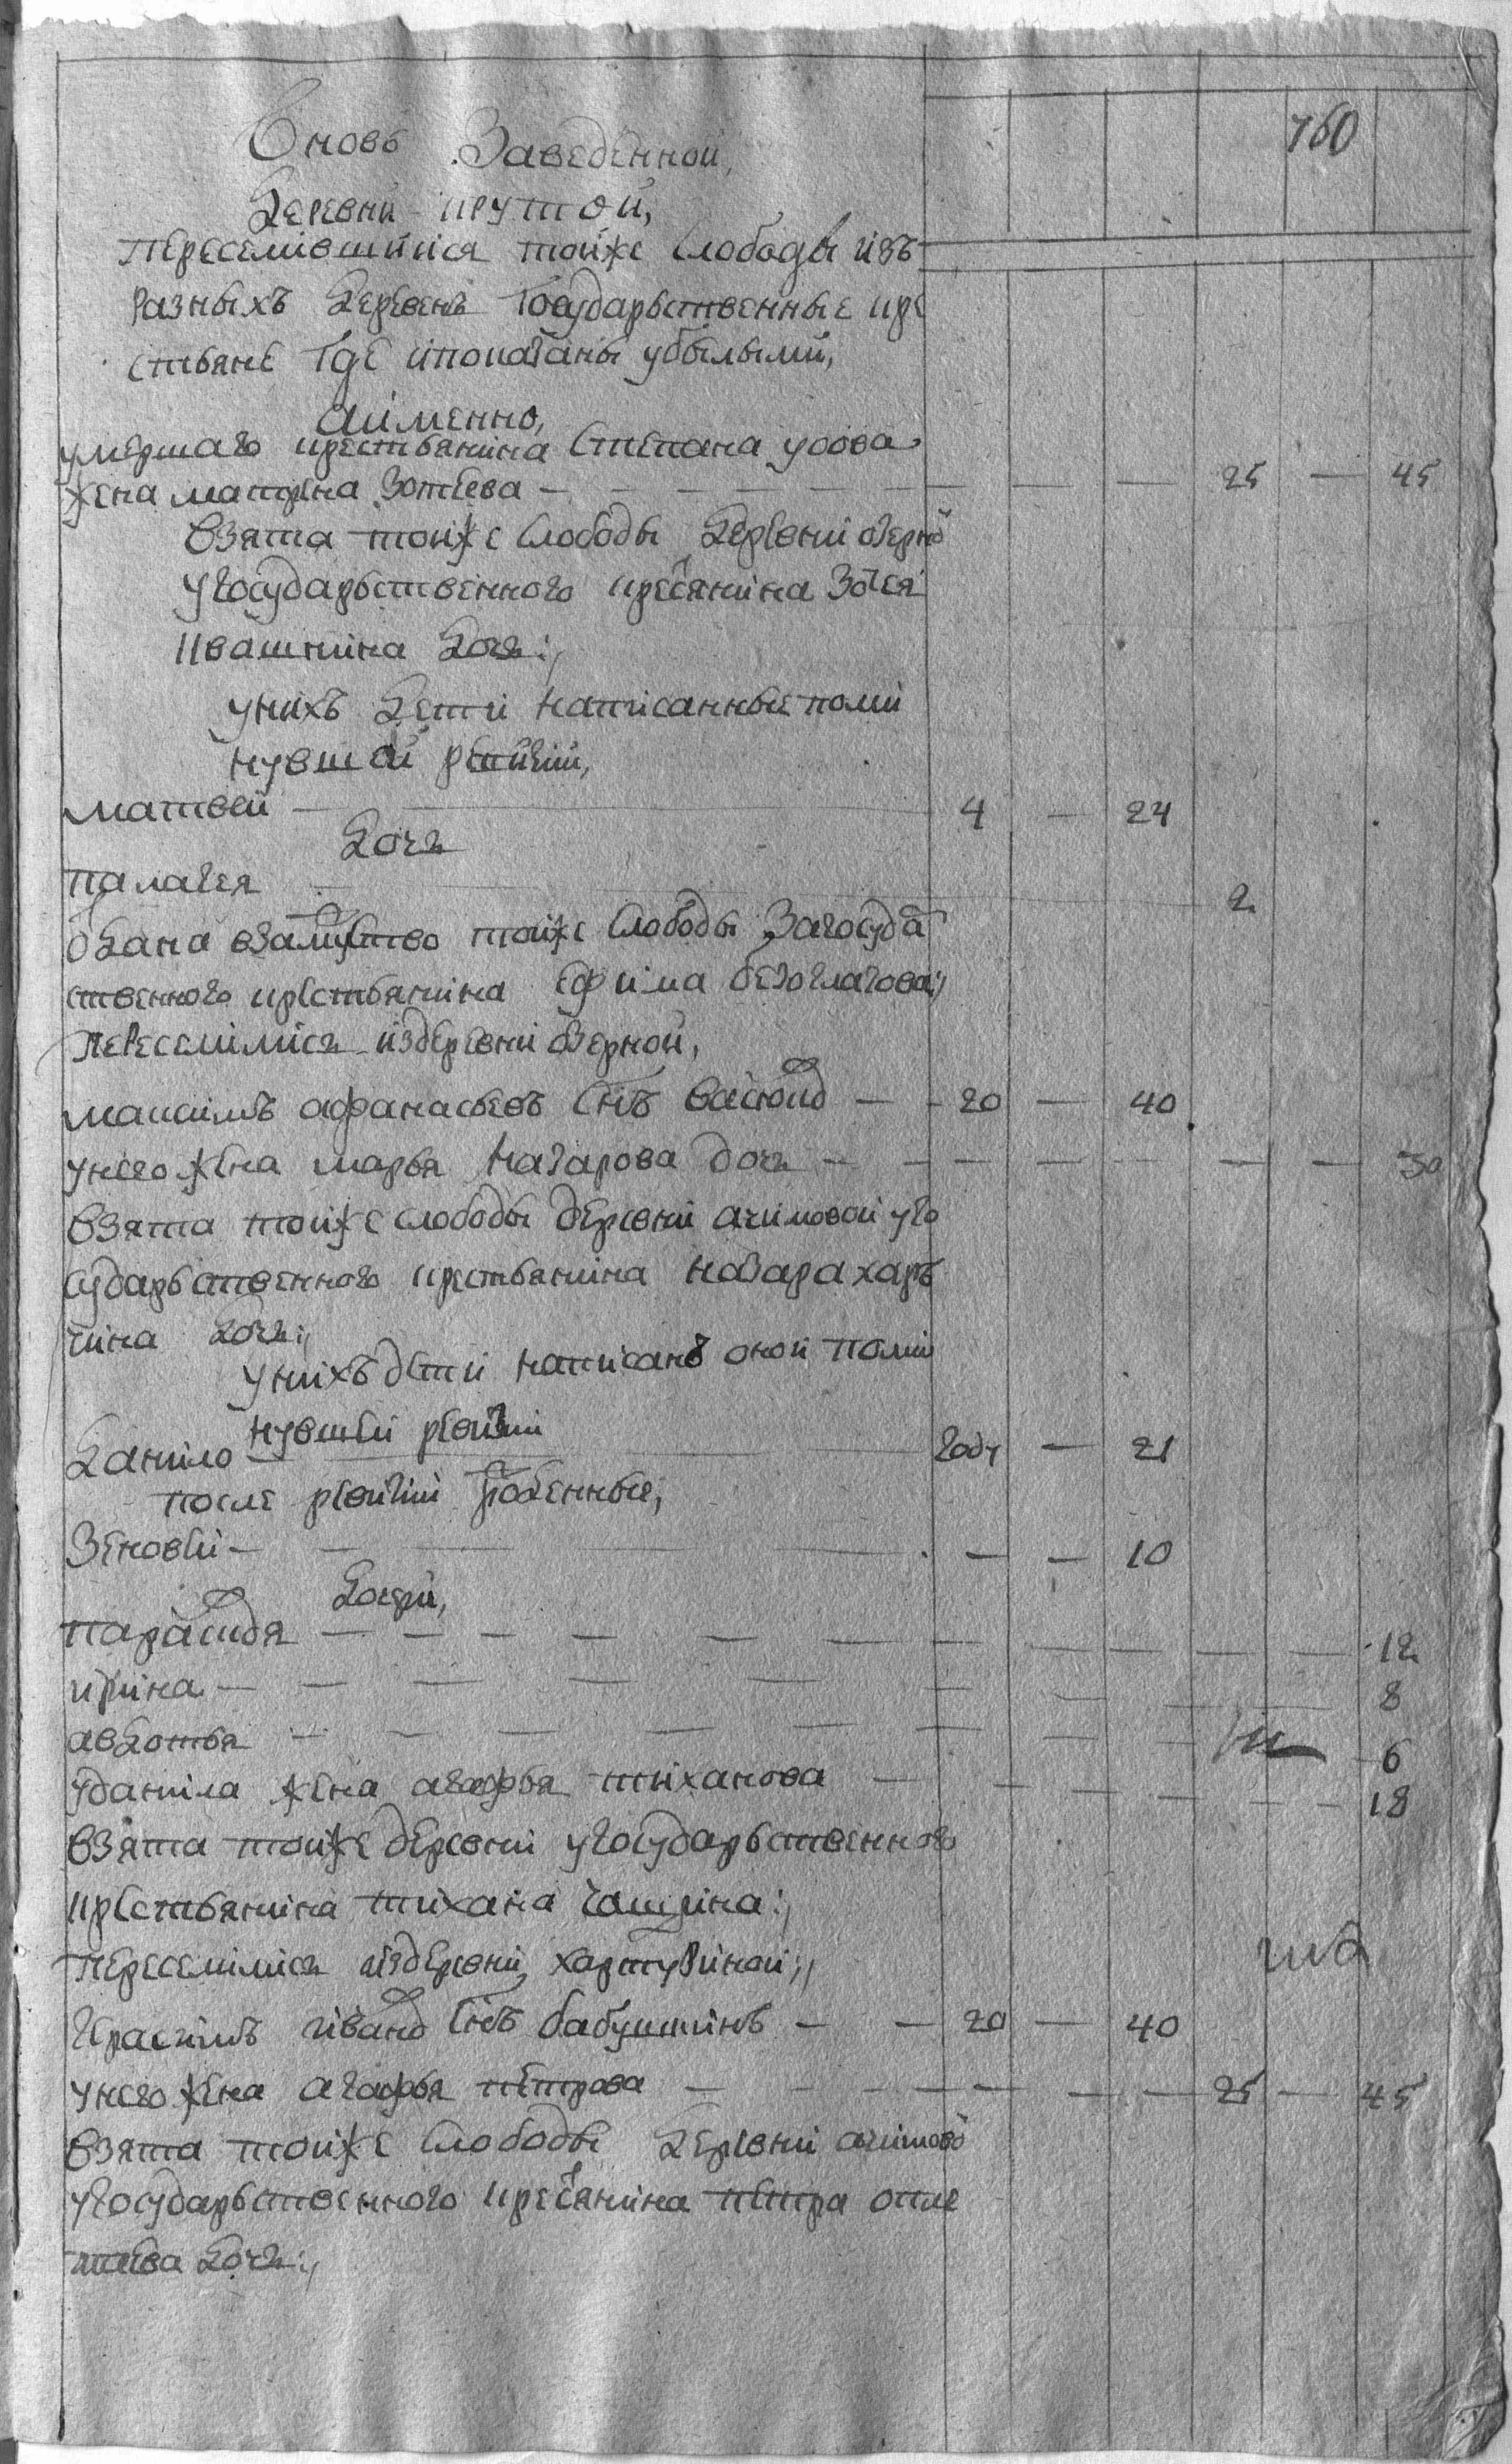 760
Вновь Заведенной,
Деревни крутой,
переселившийся тойже слободы изъ
разныхъ деревень Государьственные кре
стьяне где ипоказаны убылыми,
аимменно,
умершаго крестьянина Степана
жена матрена Зотеева — 25 — 45
Взята тойже слободы деревни озерно
угосударьственного кресянина Зотея
Ивашнина дочь:,
унихъ дети написанные поми
нувшей ревизии,
матвей — 4 — 24
Дочь
палагея 2
Одана взамуство тойже слободы Загосуда
ственного крестьянина ефима безоглагова:,
переселились издеревни озерной,
максимъ афанасьевъ снъ — 20 — 40
унего жена марья назарова дочь — 30
Взята тойже слободы деревни ачимовой уго
сударьственного крестьянина назара харь
чина дочь:,
унихъ дети написанъ оной поми
нувшей ревизии
Данило — году — 21
после ревизии рожденные,
Зеновей — — — 10
Дочери,
парасковя — 12
ирина — 8
авдотья — 6
уданила жена агафья тиханова — 18
Взята тойже деревни угосударьственного
крестьянина тихана чащина:,
переселились издеревни хартувиной:,
герасимъ иванов снъ бабушкинъ — 20 — 40
унего жена агафья петрова — 25 — 45
Взята тойже слободы деревни ачимово
угосударьственного кресянина петра отле
таева дочь:,